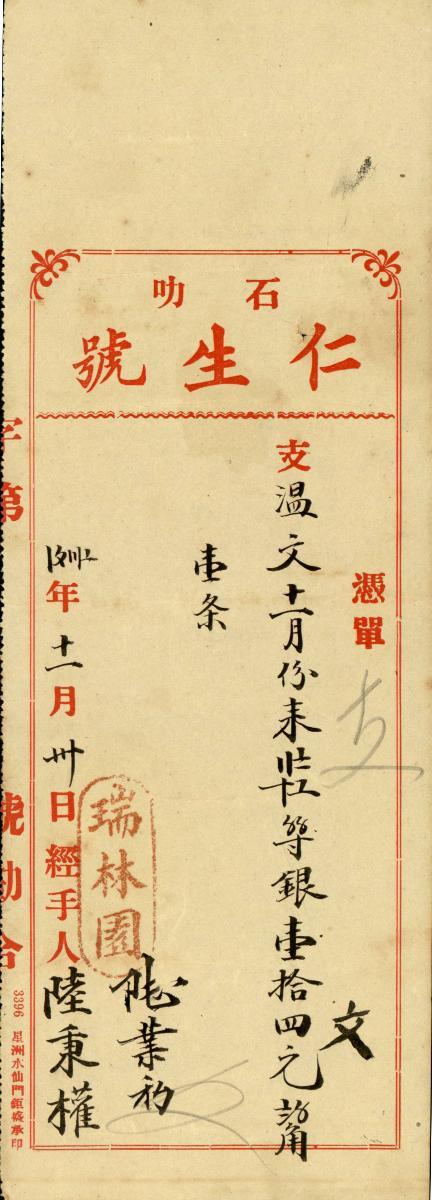 石叻
仁生號
憑單
支
支溫文十一月份來
等銀壹拾四元
角
文
壹条
年十一月卅日經手人陸秉權
瑞林園
業
字第
號勘合
3396 星洲水仙門鉅盛承印